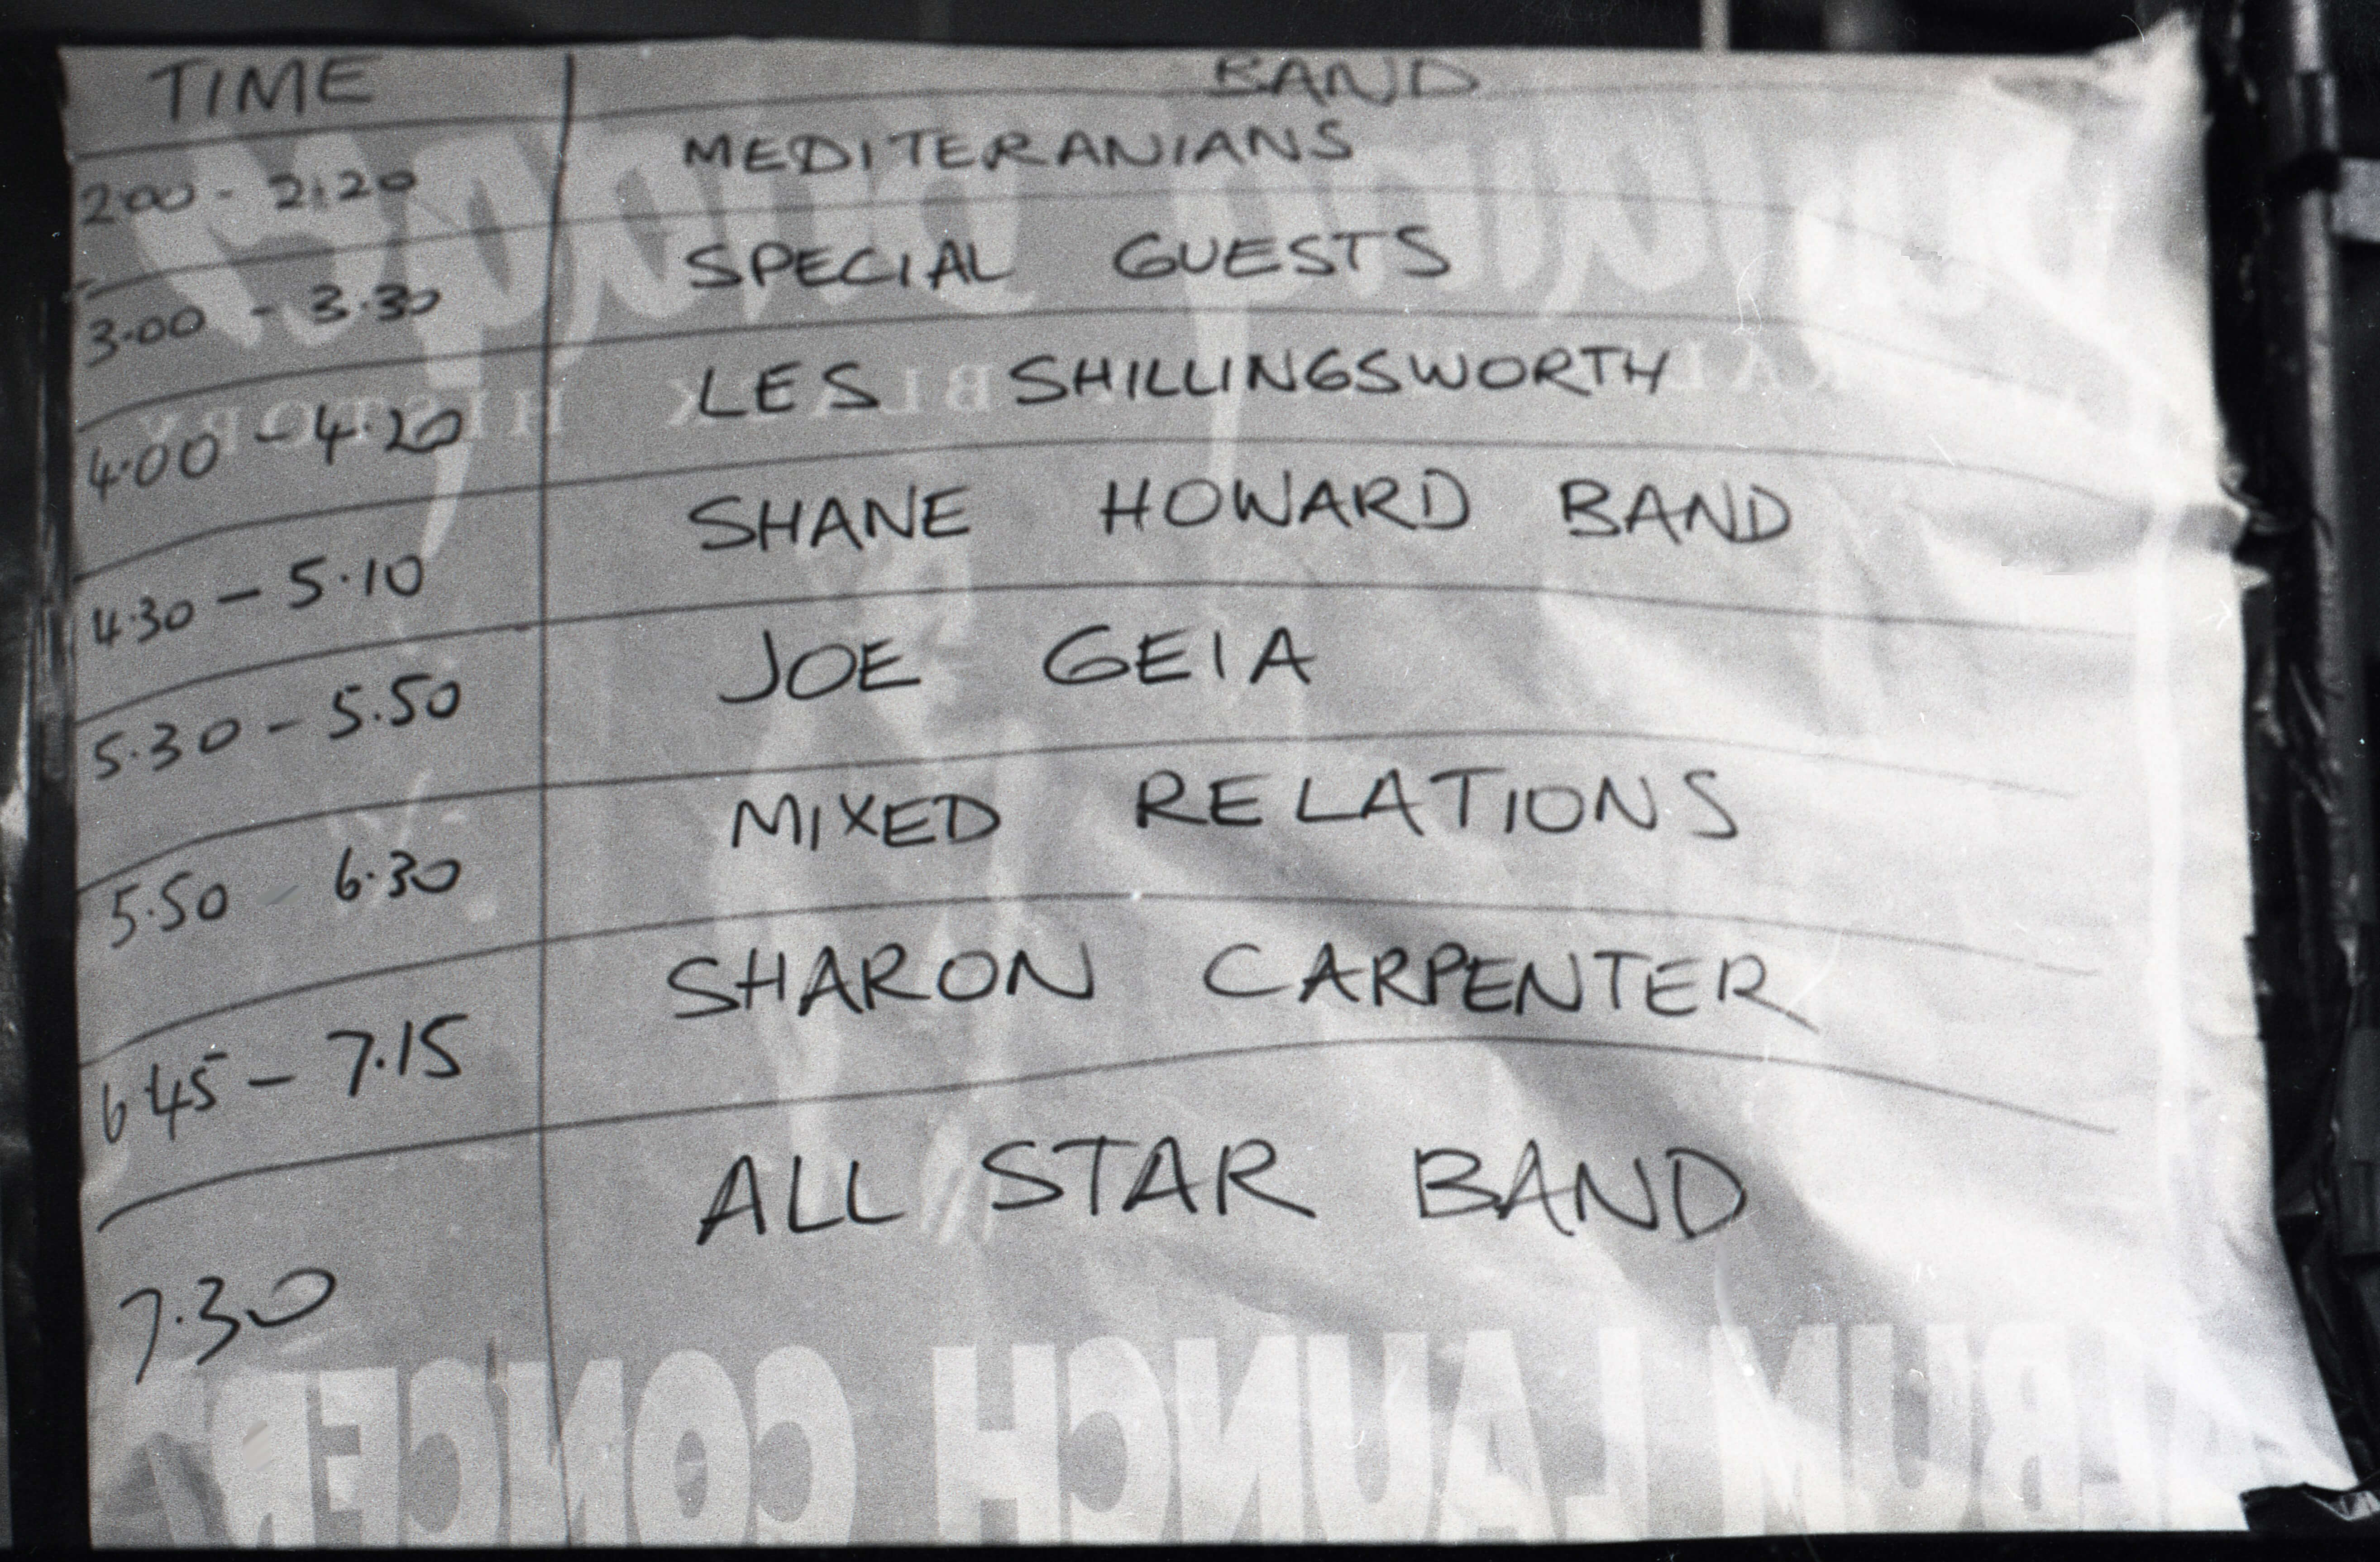 TIME BAND
2.00 - 2.20 MEDITERANIANS
3.00 - 3.30 SPECIAL GUESTS
4.00 - 4.20 LES SHILLINGSWORTH
4.30 - 5.10 SHANE HOWARD BAND
5.30 - 5.50 JOE GEIA
5.50 - 6.30 MIXED RELATIONS
6.45 - 7.15 SHARON CARPENTER
7.30 ALL STAR BAND
BLACK HISTORY
ALBUM LAUNCH CONCERT